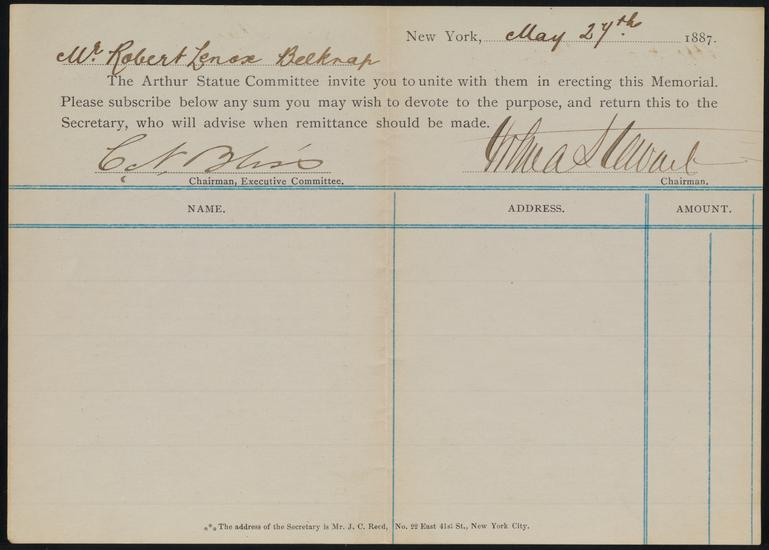 New York, May 27th 1887.
Mr. Robert Lenox Belknap
The Arthur Statue Committee invite you to unite with them in erecting this Memorial.
Please subscribe below any sum you may wish to devote to the purpose, and return this to the
Secretary, who will advise when remittance should be made.
C. N. Bliss John A Stewart
Chairman, Executive Committee. Chairman.
NAME. ADDRESS. AMOUNT.
*** The address of the Secretary is Mr. J. C. Reed, No. 22 East 41st St., New York City.